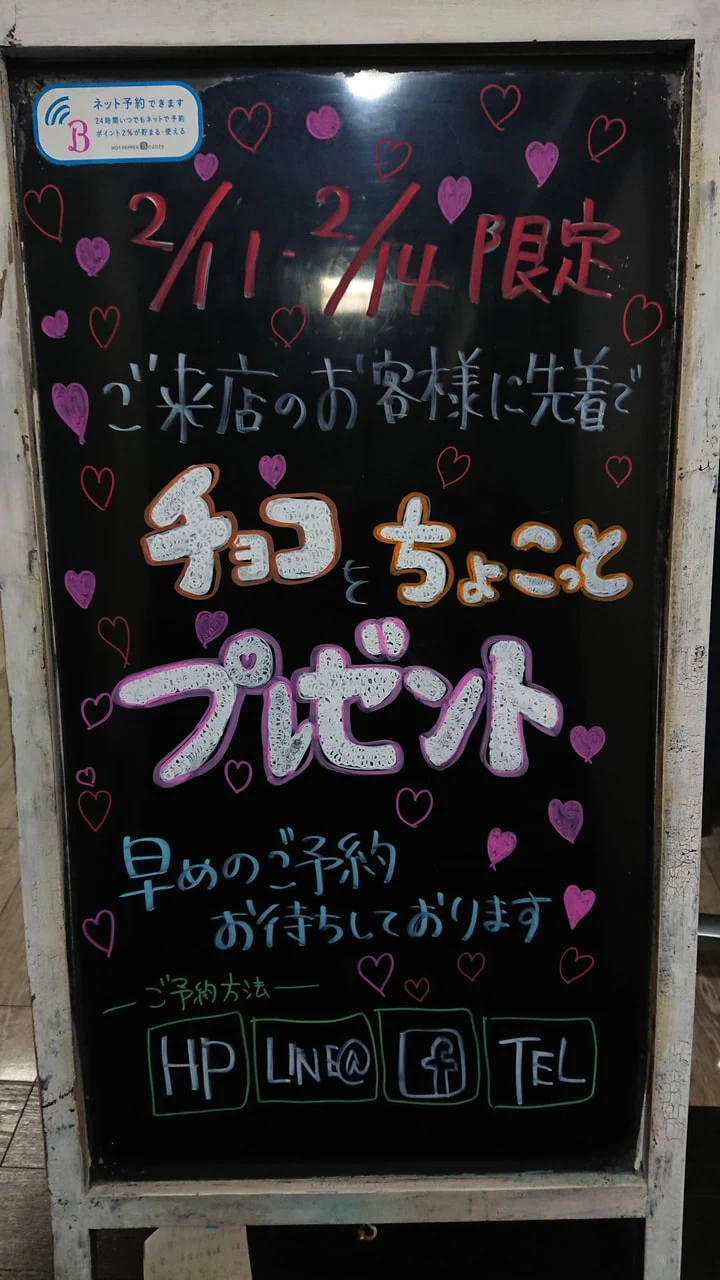 ネット予約できます
24時間いつでもネットで予約
ポイント2%が貯まる・使える
HOT PEPPER Beauty
B
2/11-2/14 限定
ご来店のお客様に先着で
チョコをちょこっと
プレゼント
早めのご予約
お待ちしております
ーご予約方法ー
HP LINE@ f TEL